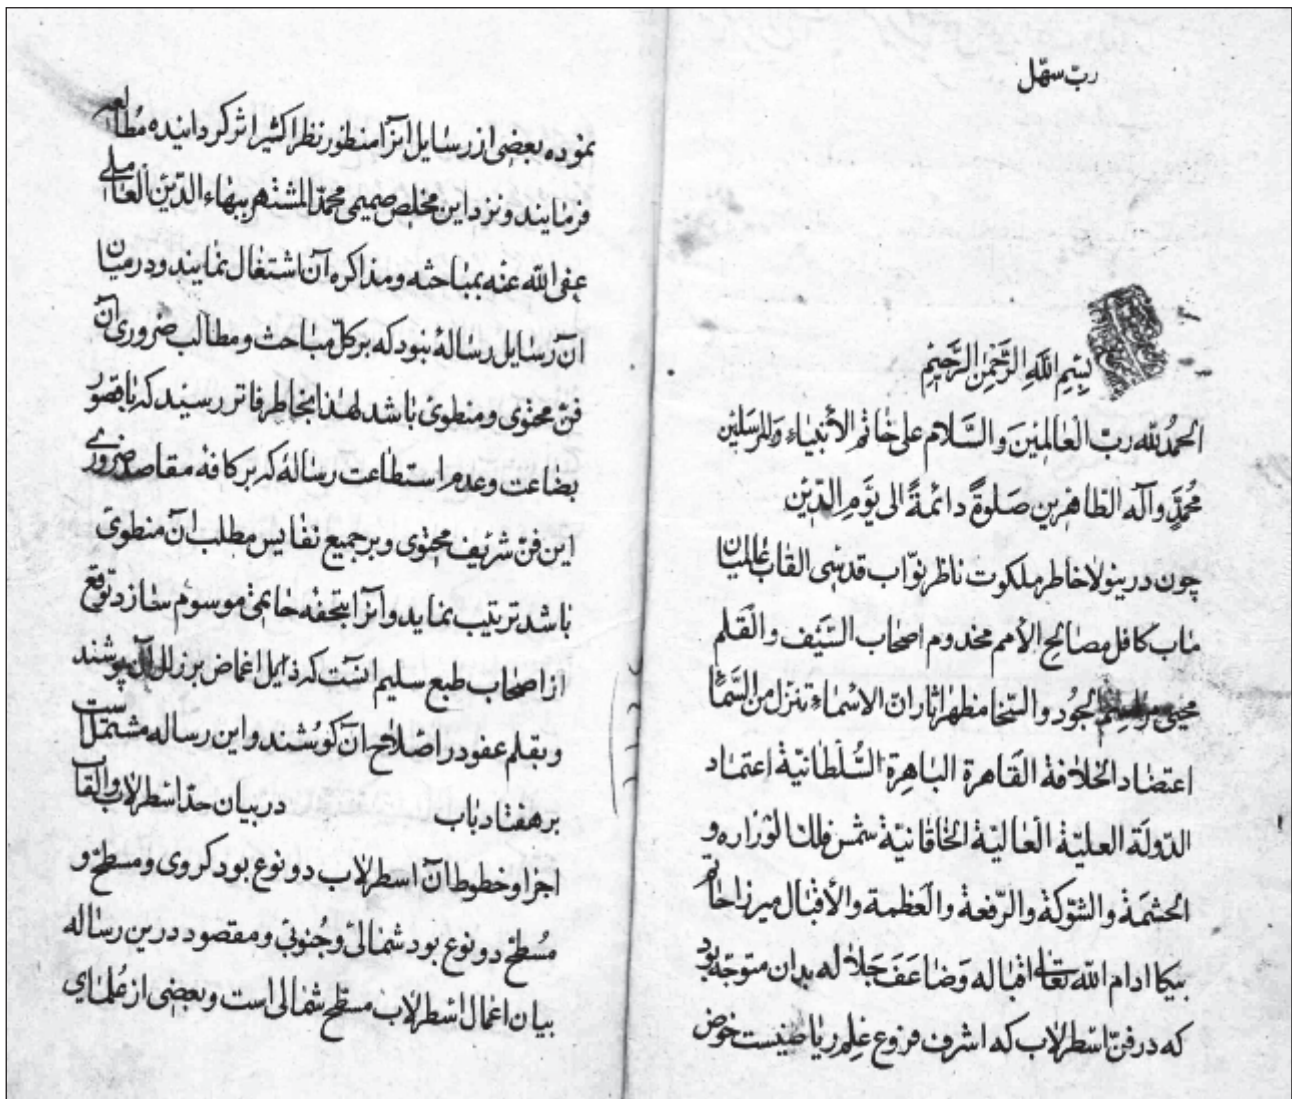 ربّ سهّل
بِسْمِ اللهِ الرَّحْمٰنِ الرَّحِيْمِ
الحمدُ لله ربّ العالمِينَ والسَّلام على خاتم الأنبياء والمرسَلين
مُحمّدٍ وآله الطاهرین صَلوةً دائمةً الى يَوْمِ الدّين
چون درینولا خاطر ملکوت ناظر نوّاب قدسی القاب عالمیان
ماب کافل مصالح الأمم مخدوم اصحاب السَّیْف والقلم
محیی مراسم الجُود والسّخا مظهر اثار انّ الاسماء تنزل من السَّما
اعتضاد الخلافة القَاهرة البَاهِرة السُّلطانيّة اعتماد
الدّولَة العليّة العالیَة الخاقانیّة شمس فلك الوزاره و
الحشمَة والشوکة والرّفعة والعظمة والأقبال میرزا حاتم
بیکا ادام الله تعالى اقباله وَضاعَفَ جَلاله بدان متوجّه بود
که در فنّ اسطرلاب که اشرف فروع عِلم ریاضیست خوض
نموده بعضی از رسایل انرا منظور نظر اکثیر اثر کردانیده مُطالعه
فرمایند ونزد این مخلص صمیمی محمّد المشتهر ببهاء الدّین العاملی
عفی الله عنه بمباحثه ومذاکره آن اشتغال نمایند ودر میان
ان رسایل رسالهٔ نبود که بر کلّ مباحث ومطالب ضروری آن
فنّ محتوی ومنطوی باشد لهذا بخاطر فاتر رسید که با قصور
بضاعت وعدم استطاعت رسالهٔ که بر کافه مقاصد ضروری
این فنّ شریف محتوی وبر جمیع نفایس مطلب آن منطوی
باشد ترتیب نماید وانرا بتحفه حاتمی موسوم سازد توقع
از اصحاب طبع سلیم انست که ذایل اغماض بر زلل آن پوشند
وبقلم عفو در اصلاح آن کوشند واین رساله مشتمل است
بر هفتاد باب در بیان حدّ اسطرلاب والقاب
اجزا وخطوط آن اسطرلاب دو نوع بود کروی ومسطّح و
مُسطّح دو نوع بود شمالیّ وجُنوبیّ ومقصود درین رساله
بیان اعمال اسطرلاب مسطّح شمالی است وبعضی از عُلمای